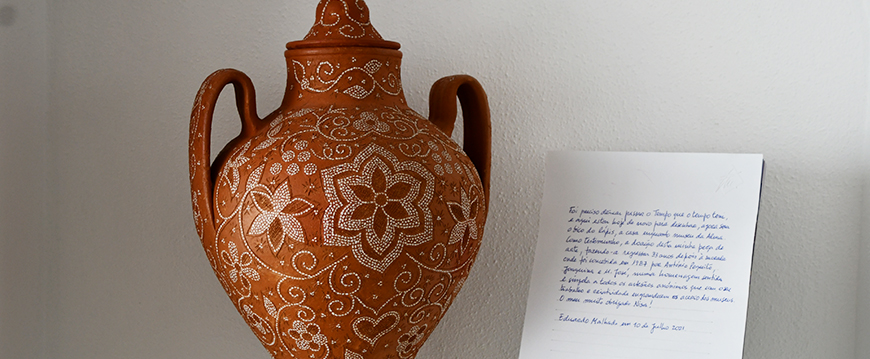 Foi preciso deixar passar o Tempo que o tempo tem,
e aqui estou hoje de novo para desenhar, agora sem
o bico do lápis, a casa enquanto museu da Alma
como testemunho, a doação desta minha peça de
arte, fazendo-a regressar 33 anos depois à
onde foi concebida em 1987 por António Pequito,
Joaquina e sr. José, numa homenagem sentida
e singela a todos os artesãos anónimos que com o seu
trabalho e criatividade engrandecem os acervos dos museus
O meu muito obrigado Nisa!
Eduardo Malhado em 10 de Julho 2021